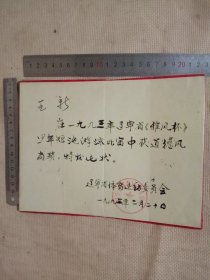 新
在一九八三年辽宁省《雏凤杯》
少年短池游泳比赛中获道德风
尚奖,特发此状。
辽宁省体育运动委员会
一九八三年二月二十日